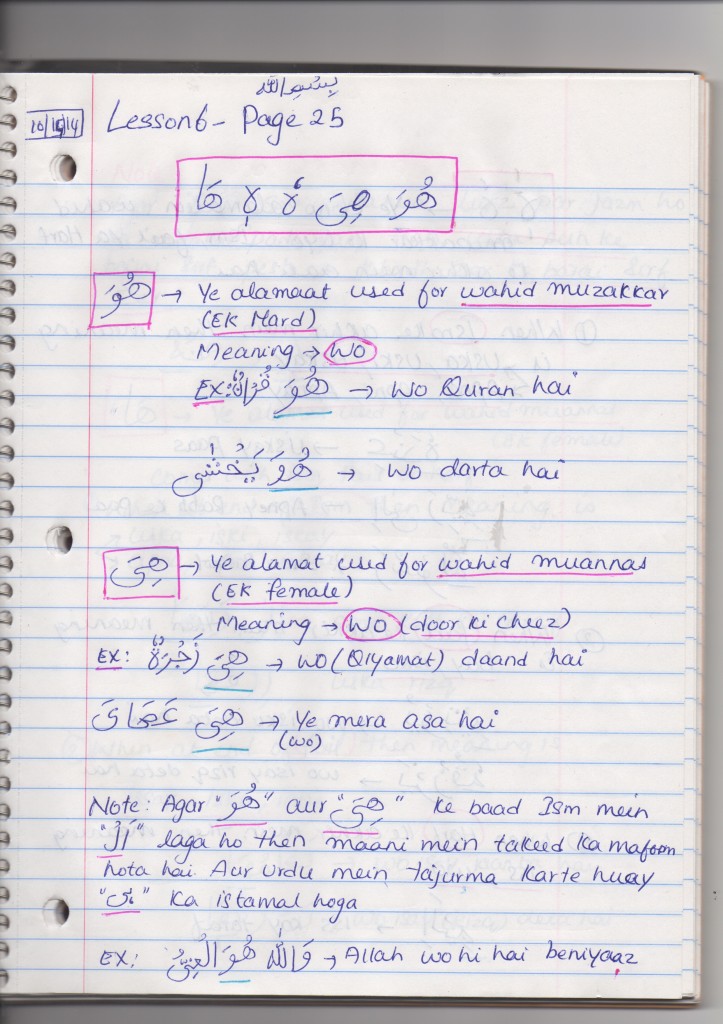 بِسْمِ اللّٰه
Lesson 6 - Page 25
هُوَ هِىَ هُ هِ هَا
هُوَ → Ye alamaat used for wahid muzakkar
(EK Mard)
Meaning → WO
EX: هُوَ قُرْاٰنٌ → Wo Quran hai
هُوَ يَخْشٰى → Wo darta hai
هِىَ → Ye alamat used for wahid muannas
(EK female)
Meaning → WO (door ki cheez)
EX: هِىَ زَجْرَةٌ → WO (Qiyamat) daand hai
هِىَ عَصَاىَ → Ye mera asa hai
(wo)
Note: Agar "هُوَ" aur "هِىَ" ke baad Ism mein
"اَلْ" laga ho then maani mein takeed ka mafoom
hota hai. Aur urdu mein tajurma karte huay
"ہی" ka istamal hoga
EX: وَاللّٰهُ هُوَ الْغَنِىُّ → Allah wohi hai beniyaaz